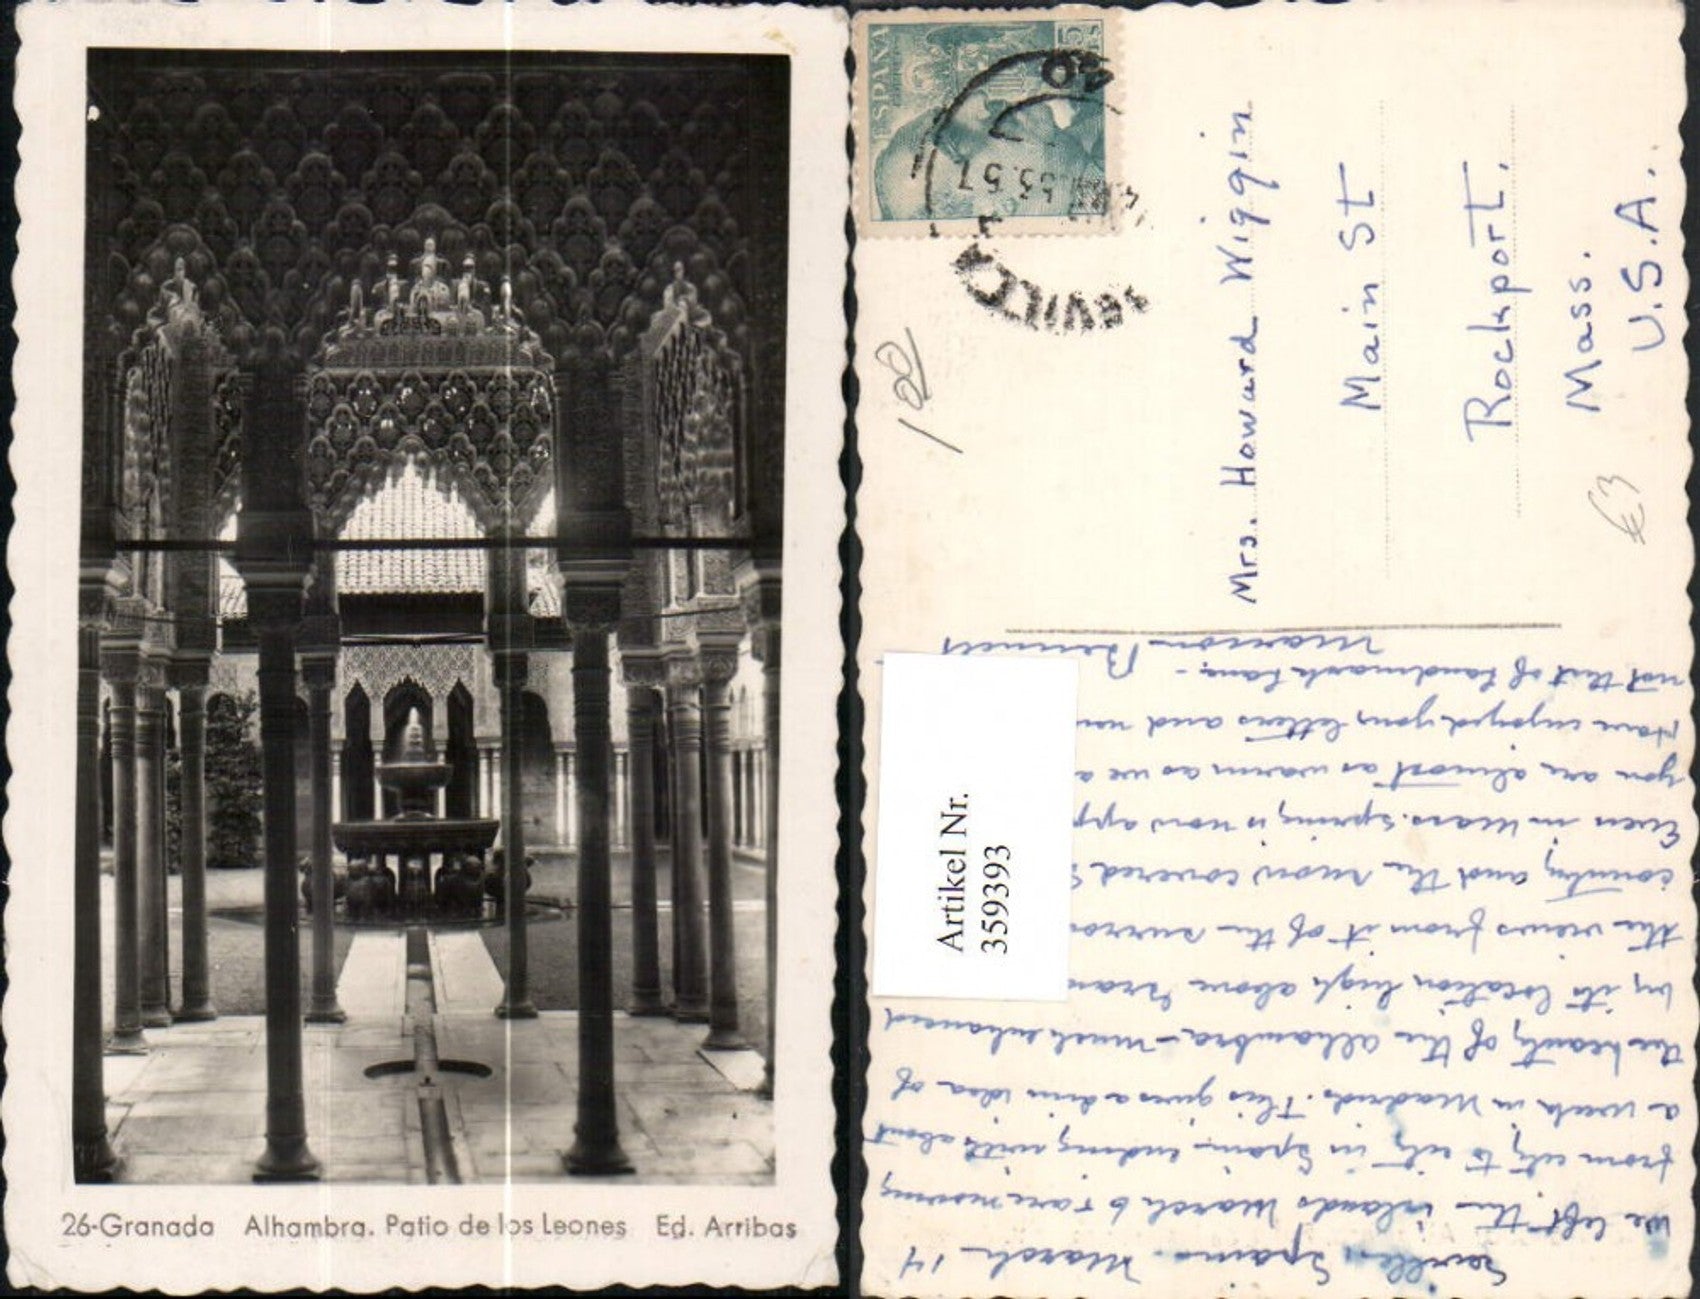 26-Granada Alhambra. Patio de los Leones Ed. Arribas
ESPAÑA
5
SEVILLA
Mrs. Howard Wiggin
Main St
Rockport.
Mass.
U.S.A.
100
€3
Artikel Nr.
3593393
Seville, Spain. March 14
We left the islands March 6 & are moving
from city to city in Spain ending with about
a week in Madrid. This gives a dim idea of
the beauty of the alhambra - much enhanced
by its location high above
the views from it of the
country and the snow covered
Even in Mass. Spring is now
you are almost as warm as we
Have enjoyed your letters and
not that of Landmark Lane -
Marion Bennett